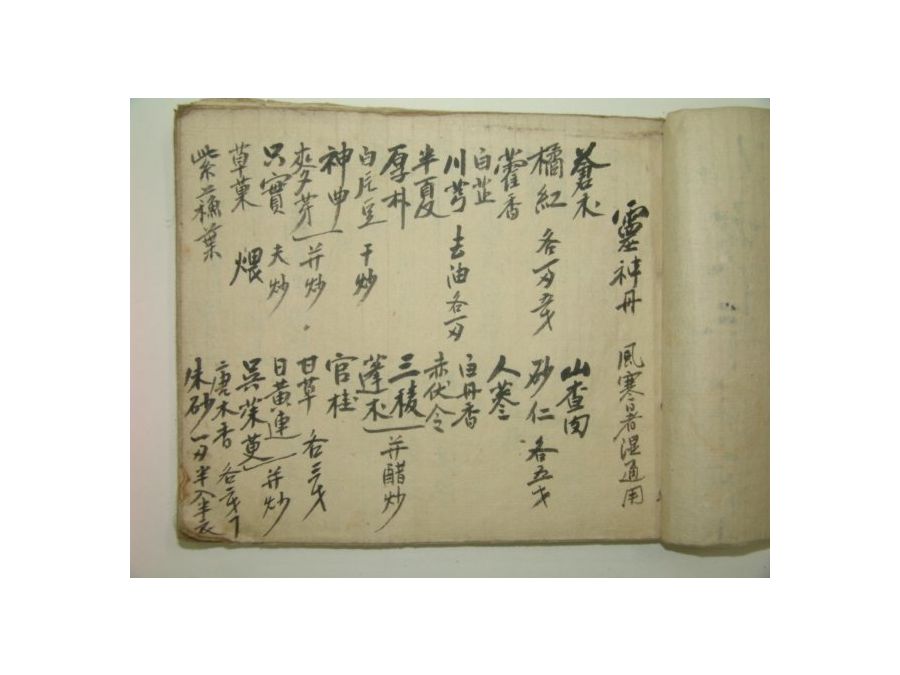 靈神丹 風寒暑湿通用
蒼朮
橘紅 各一刄五戋
藿香
白芷
川芎 去油各一刄
半夏
厚朴
白扁豆 干炒
神曲
麥芽 并炒
只實 夫炒
草菓 煨
紫蘇葉
山査肉
砂仁 各五戋
人蔘
白丹香
赤伏令
三稜
蓬朮 并醋炒
官桂
甘草 各三戋
黃連
吳茱萸 并炒
唐木香 各二戋
朱砂 一刄半入半衣